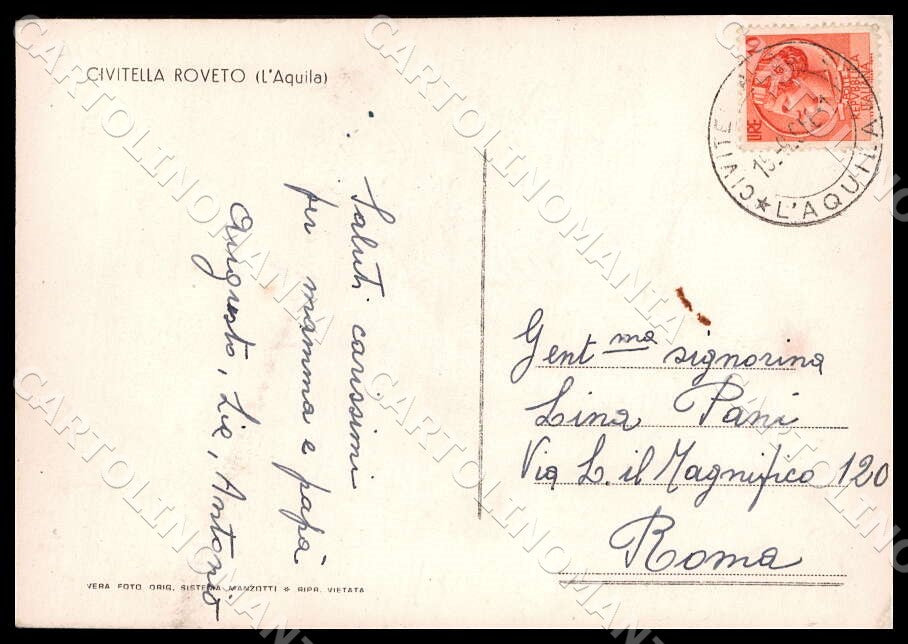 CIVITELLA ROVETO (L'Aquila)
Saluti carissimi
per mamma e papà
Augusto, Lia, Antonio
VERA FOTO ORIG. SISTEMA MANZOTTI * RIPR. VIETATA
LIRE
REPUBBLICA
ITALIANA
CIVITE
★ L'AQUILA
Gent.ma signorina
Lina Pani
Via L. il Magnifico 120
Roma
CARTOLINOMANIA